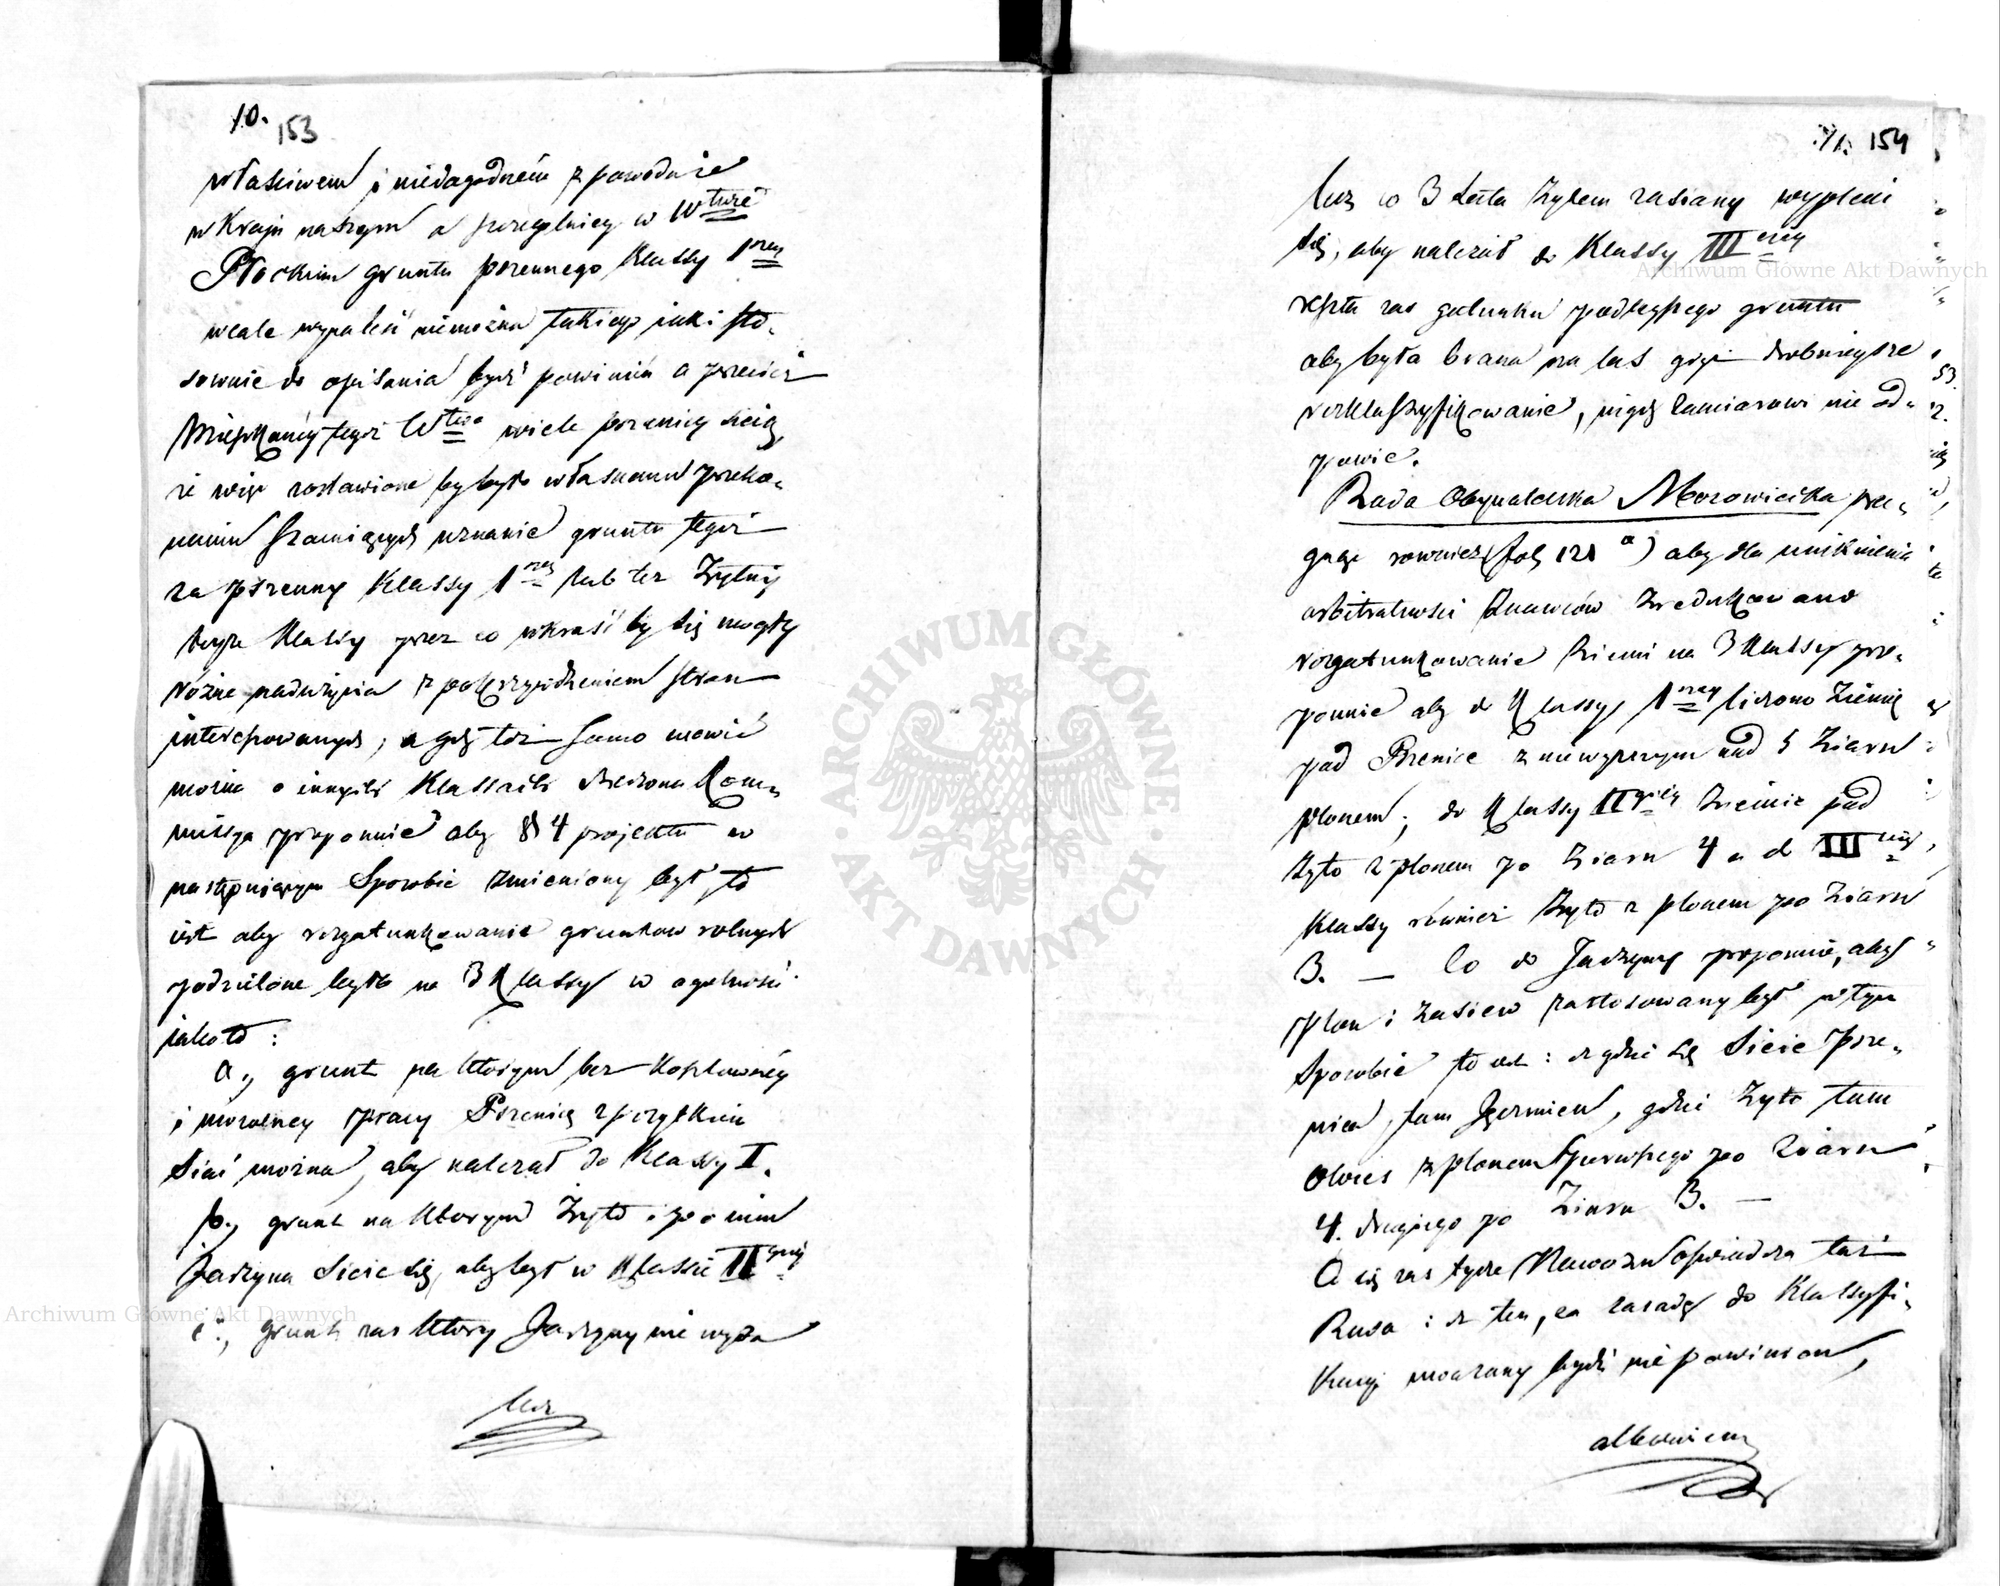 10. 153
własciwem i niedogodnem z powodu że
w Kraju naszym a szczegulniey w Wtwie
Płockim gruntu pszennego Klassy 1szey
wcale wynaleść niemożna takiego jaki sto-
sownie do opisania bydź powinien a przecież
Mieszkańcy tegoż Wtwa wiele pszenicy sieią,
że więc zostawione by było własnemu przeko-
naniu Szacuiących uznanie gruntu tegoż
za pszenny Klassy 1szey lub też Żytniy
teyże Klassy przez co wkraść by się mogły
różne nadużycia z pokrzywdzeniem stron
interessowanych; a gdy toż samo mowić
można o innych Klassach rzeczona Kom-
missya proponuie aby § 4 projektu w
następuiącym Sposobie zmieniony był, to
iest aby rozgatunkowanie gruntow rolnych
podzielone było na 3 Klassy w ogulnosci
jakoto:
a., grunt na ktorym bez kosztowney
i mozolney pracy Pszenicę z pożytkiem
Siać można, aby należał do Klassy I.
b., grunt na ktorym Żyto i po nim
Jarzyna Sieie się, aby był w Klassie IIgiey
c., grunt zas ktory Jarzyny nie wyda
lecz
11. 154
lecz co 3 Lata Żytem zasiany wypleni
się, aby należał do Klassy IIIciey
reszta zas gatunku podleyszego gruntu
aby była brana za las gdyż drobnieysze
rozklassyfikowanie, nigdy zamiarowi nie od-
powie.
Rada Obywatelska Mazowiecka pra-
gnąc rownież (fol. 121 a) aby dla uniknienia
arbitralnosci Znawców zredukowano
rozgatunkowanie Ziemi na 3 Klassy pro-
ponuie aby do Klassy 1szey liczono Ziemię
pod Pszenicę z niewyższym nad 5 Ziarn
plonem; do Klassy IIgiey Ziemie pod
Żyto z plonem po Ziarn 4 a do IIIciey
Klassy również Żyto z plonem po Ziarn
3. — Co do Jarzyny proponuie, aby
plon i zasiew zastosowany był w tym
Sposobie to iest: iż gdzie się Sieie Psze-
nica, tam Jęczmień, gdzie Żyto tam
Owies z plonem pierwszego po Ziarn
4. drugiego po Ziarn 3. —
Co się zas tycze Nawozu oświadcza taż
Rada: iż ten, za zasadę do Klassyfi-
kacyi uważany bydź nie powinien,
albowiem
Archiwum Główne Akt Dawnych
Archiwum Główne Akt Dawnych
ARCHIWUM GŁÓWNE · AKT DAWNYCH ·